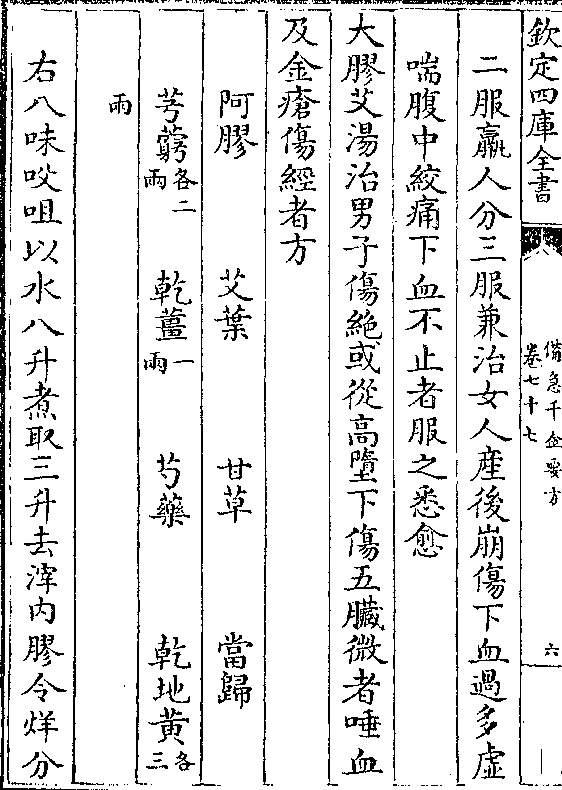 欽定四庫全書
備急千金要方
卷七十七
六
二服羸人分三服兼治女人產後崩傷下血過多虛
喘腹中絞痛下血不止者服之悉愈
大膠艾湯治男子傷絶或從高墮下傷五臟微者唾血
及金瘡傷經者方
阿膠 艾葉 甘草 當歸
芎藭各二兩 乾薑一兩 芍藥 乾地黃各三
兩
右八味㕮咀以水八升煮取三升去滓内膠令烊分